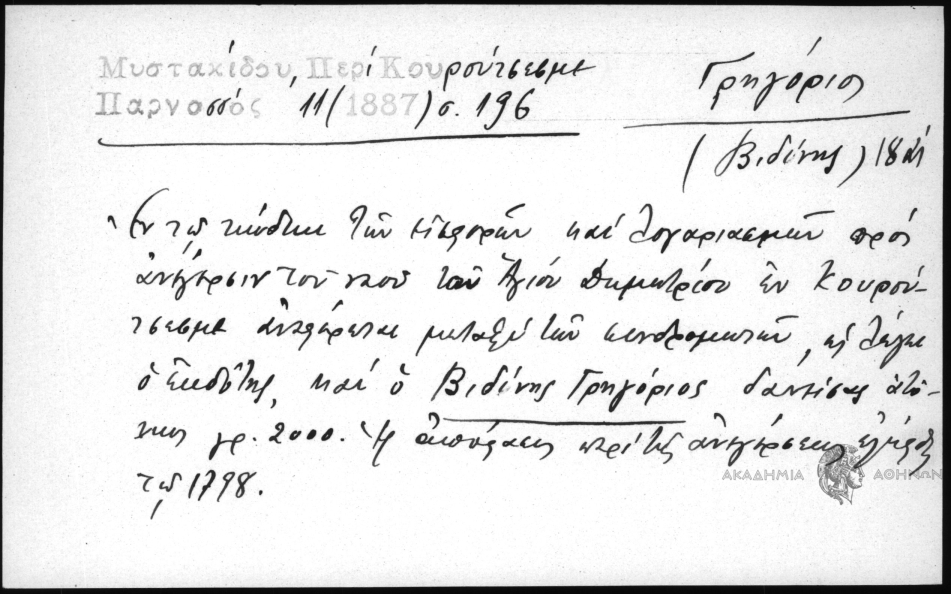 Μυστακίδου, Περί Κουρούτσεσμε
Παρνασσός 11 (1887) σ. 196
Γρηγόριος
(Βιδύνης) 18
Ἐν τῷ κώδικι τῶν εἰσφορῶν καί λογαριασμῶν πρός
ἀνέγερσιν τοῦ ναοῦ τοῦ Ἁγίου Δημητρίου ἐν Κουρού-
τσεσμε ἀναφέρεται μεταξύ τῶν συνδρομητῶν, ὡς λέγει
ὁ ἐκδότης, καί ὁ Βιδύνης Γρηγόριος δανείσας ἀτό-
κως γρ. 2000. Ἡ ἀπόφασις περί τῆς ἀνεγέρσεως ἐλήφθη
τῷ 1798.
ΑΚΑΔΗΜΙΑ ΑΘΗΝΩΝ